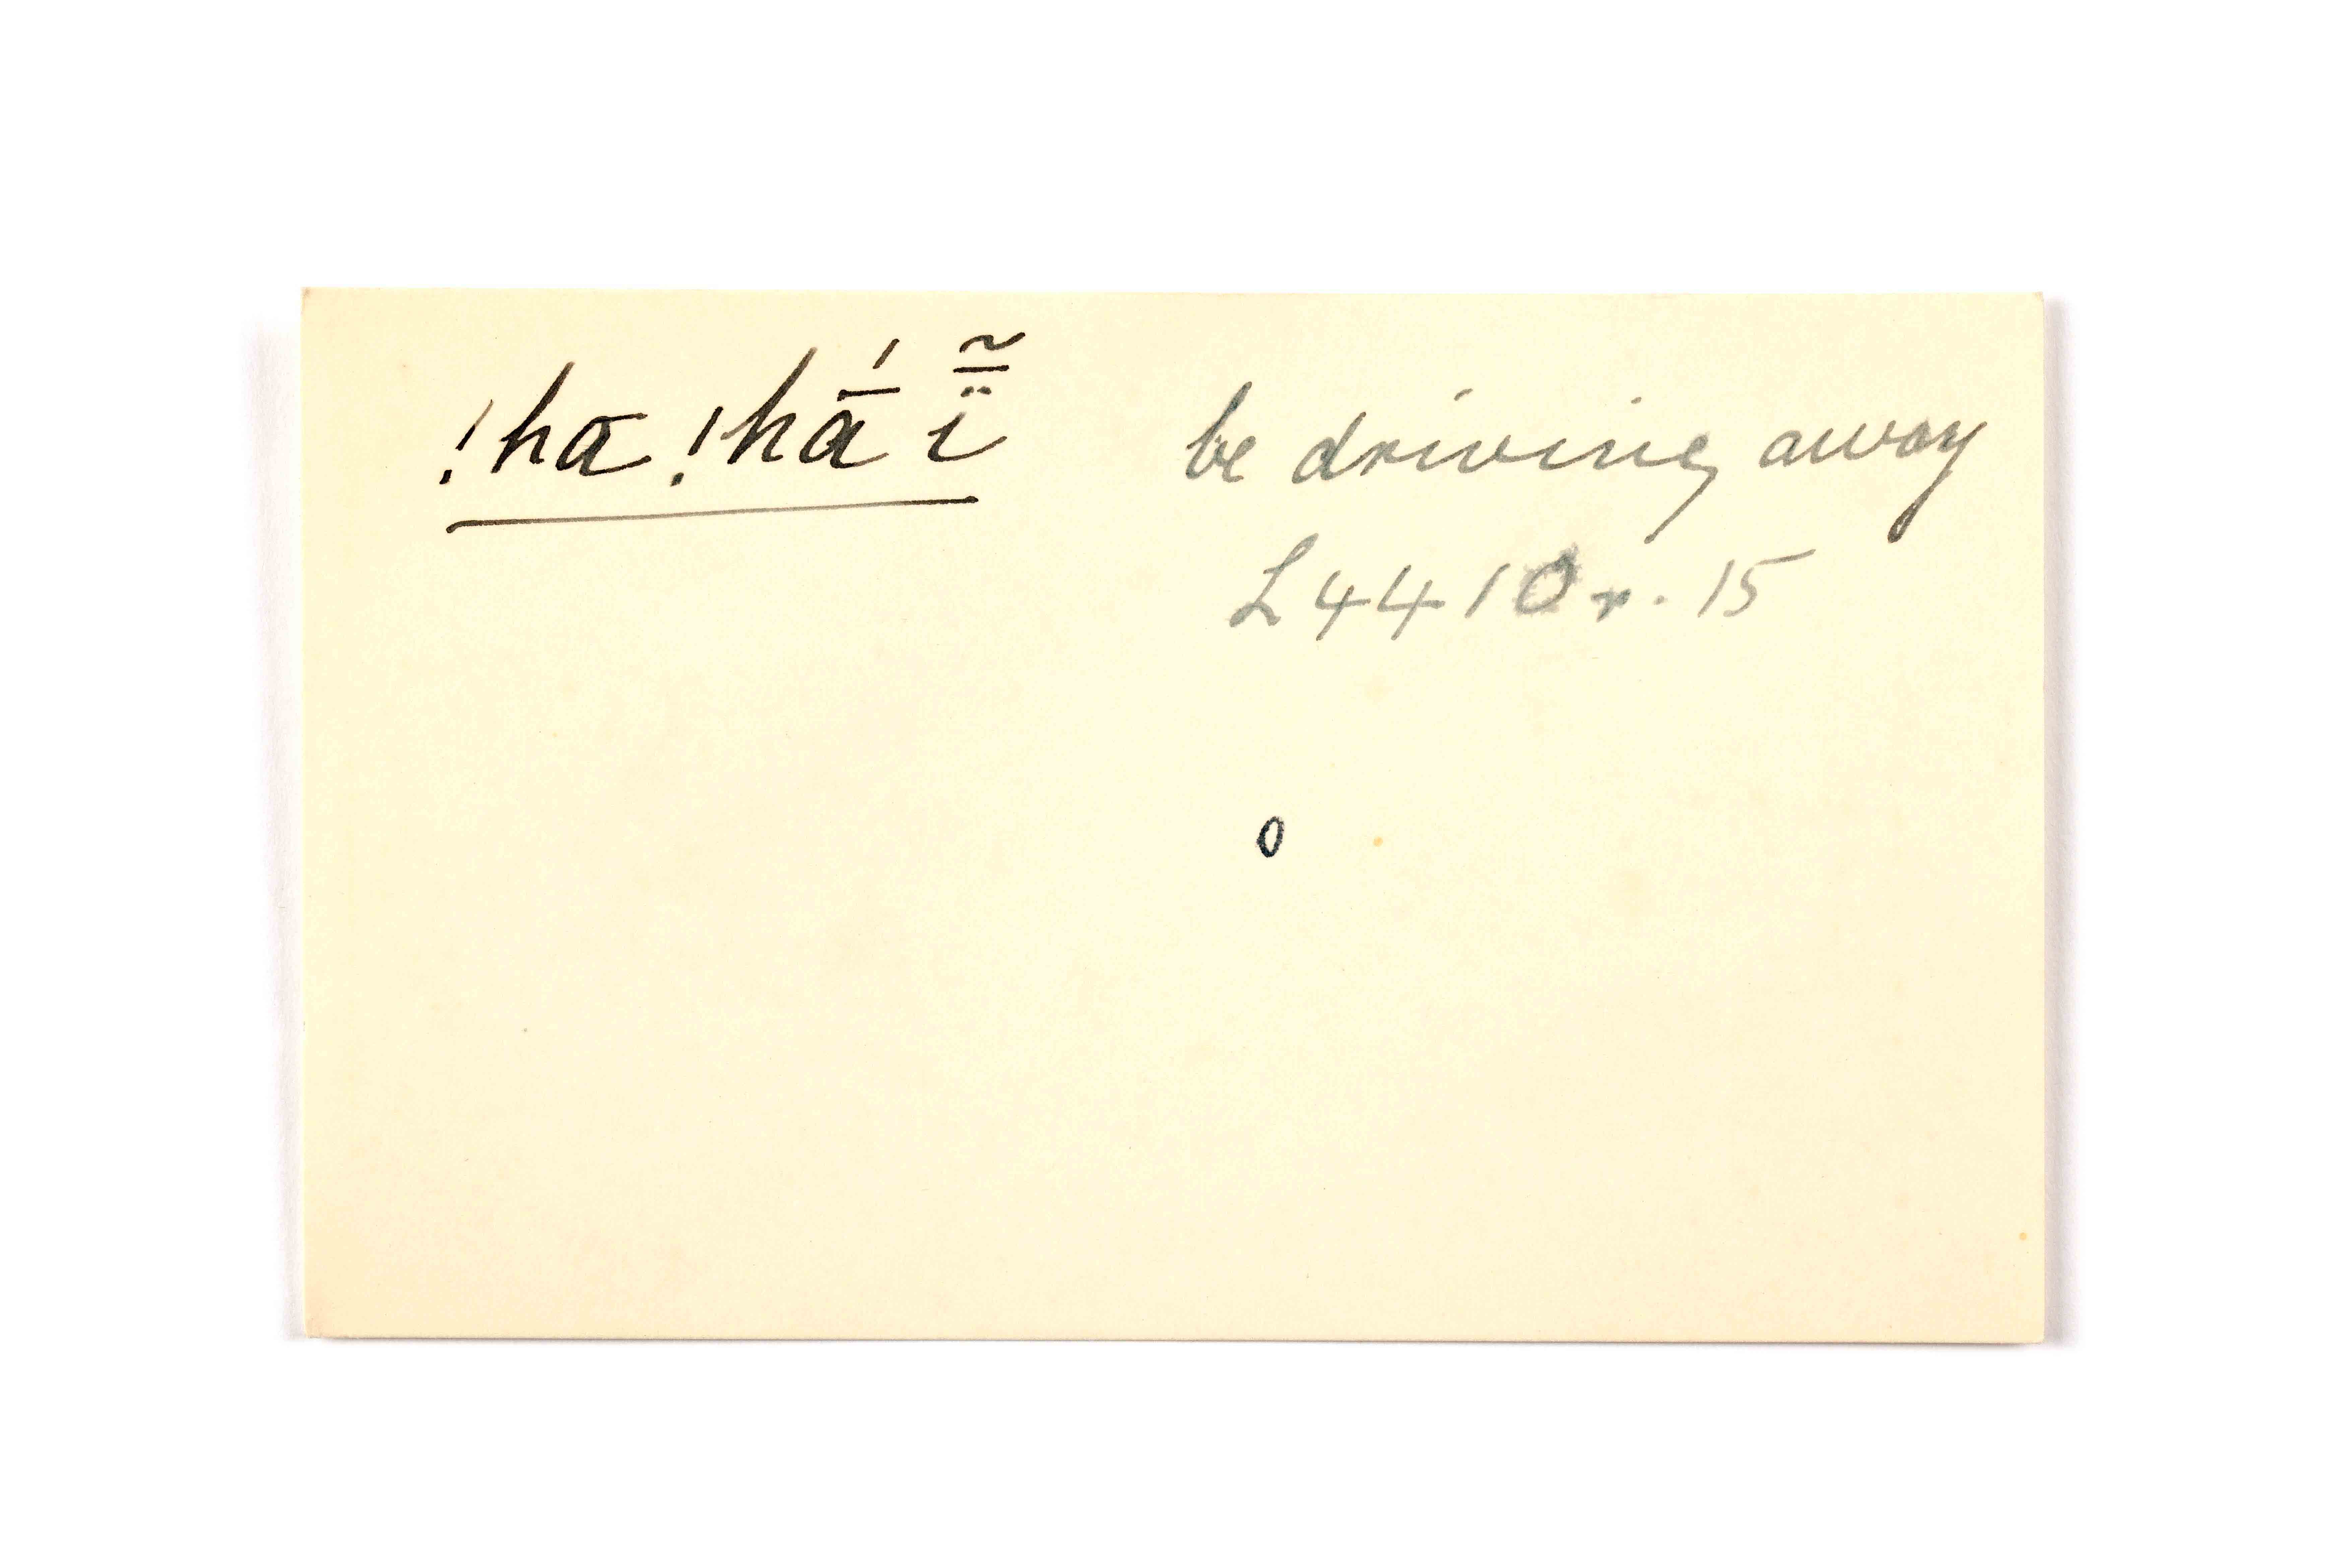 !hā !hā́ ï̄̃ be driving away
L 4410 r. 15
0